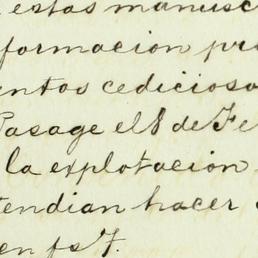 estas manusc
formacion pr
entos cedicioso
Pasage el 8 de Fe
la explotacion
tendian hacer
en fs 7.